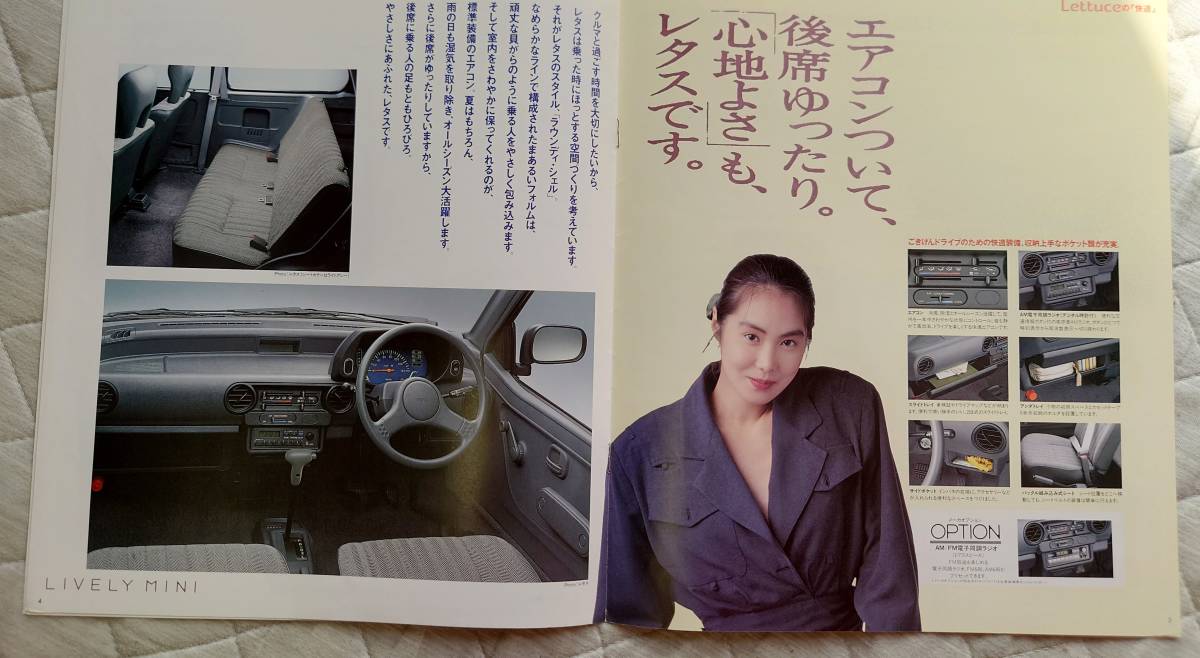 Lettuceの「快適」
エアコンついて、
後席ゆったり。
「心地よさ」も、
レタスです。
クルマと過ごす時間を大切にしたいから、
レタスは乗った時にほっとする空間づくりを考えています。
それがレタスのスタイル、「ラウンディ・シェル」。
なめらかなラインで構成されたまあるいフォルムは、
頑丈な貝がらのように乗る人をやさしく包み込みます。
そして室内をさわやかに保ってくれるのが、
標準装備のエアコン。夏はもちろん、
雨の日も湿気を取り除き、オールシーズン大活躍します。
さらに後席がゆったりしていますから、
後席に乗る人の足もともひろびろ。
やさしさにあふれた、レタスです。
ごきげんドライブのための快適装備。収納上手なポケット類が充実。
エアコン
AM電子同調ラジオ(デジタル時計付)
スライドトレイ
アンダトレイ
サイドポケット
バックル組み込み式シート
メーカオプション
OPTION
AM/FM電子同調ラジオ
FM放送も楽しめる
電子同調ラジオ。FM6局、AM6局が
プリセットできます。
LIVELY MINI
4